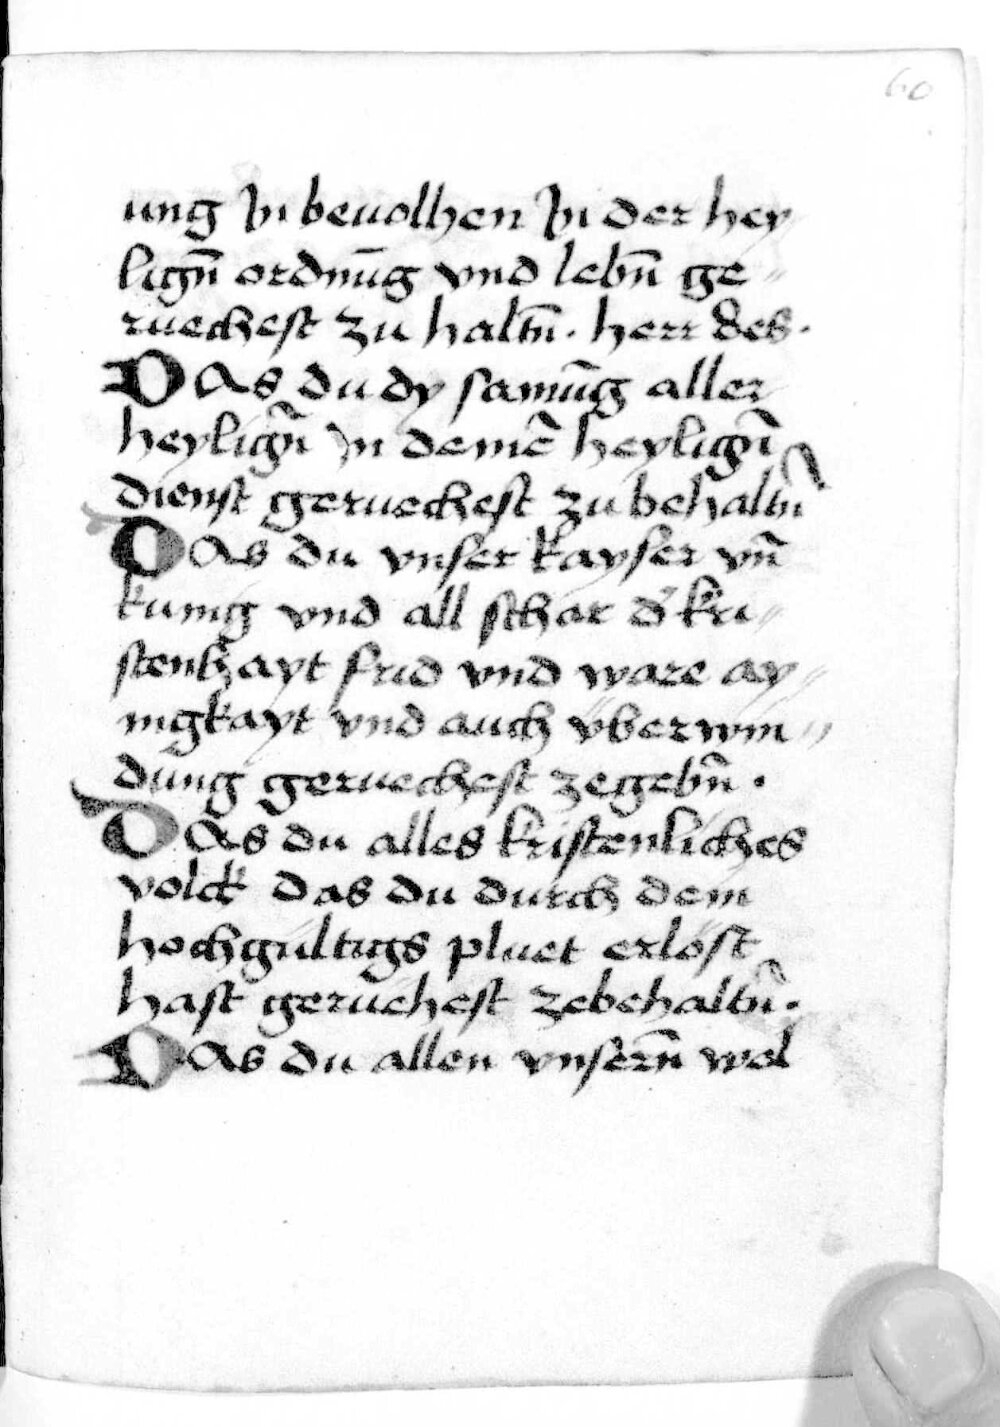 60
ung In beuolhen In der hey
lign̄ ordnūg vnd lebn̄ ge
ruechest zu haltn̄. herr des.
DAs du dy samūg aller
heylign̄ In deinē heylign̄
dienst geruechest zu behaltn̄
DAs du vnser kayser vn̄
kunig vnd all schar d' kri
stenhayt frid vnd ware ay
nigkayt vnd auch vberwin
dung geruechest zegebn̄.
DAs du alles kristenliches
volck das du durch dein
hochgultigs pluet erlost
hast geruehest zebehaltn̄.
DAs du allen vnsern̄ wol